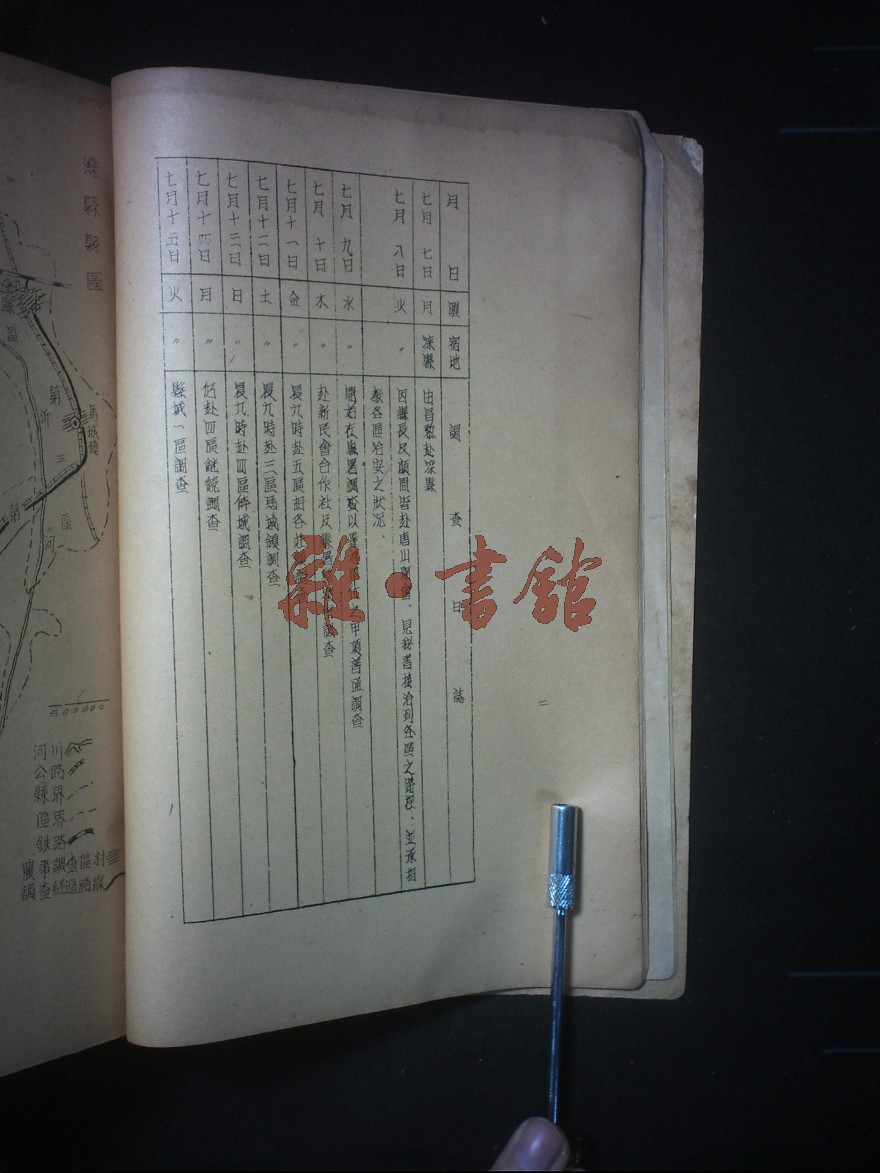 月日 曜 宿地 調查日誌
七月七日 月 滦縣 由昌黎赴滦縣
七月八日 火 〃 因縣長及顧問皆赴唐山開會、見秘書接洽到各區之路程、並承指
教各區治安之狀況、
七月九日 水 〃 開始在縣署調查以
甲項普通調查
七月十日 木 〃 赴新民會合作社及縣署
調查
七月十一日 金 〃 晨九時赴五區胡各庄
七月十二日 土 〃 晨九時赴三區馬城鎮調查
七月十三日 日 〃 晨九時赴四區倴城調查
七月十四日 月 〃 仍赴四區繼續調查
七月十五日 火 〃 縣城一區調查
二
雜·書館
滦縣縣圖
區
第
沂
馬城鎮
三
第
河
區
河川
公路
縣界
區界
鉄路
調查經過路線